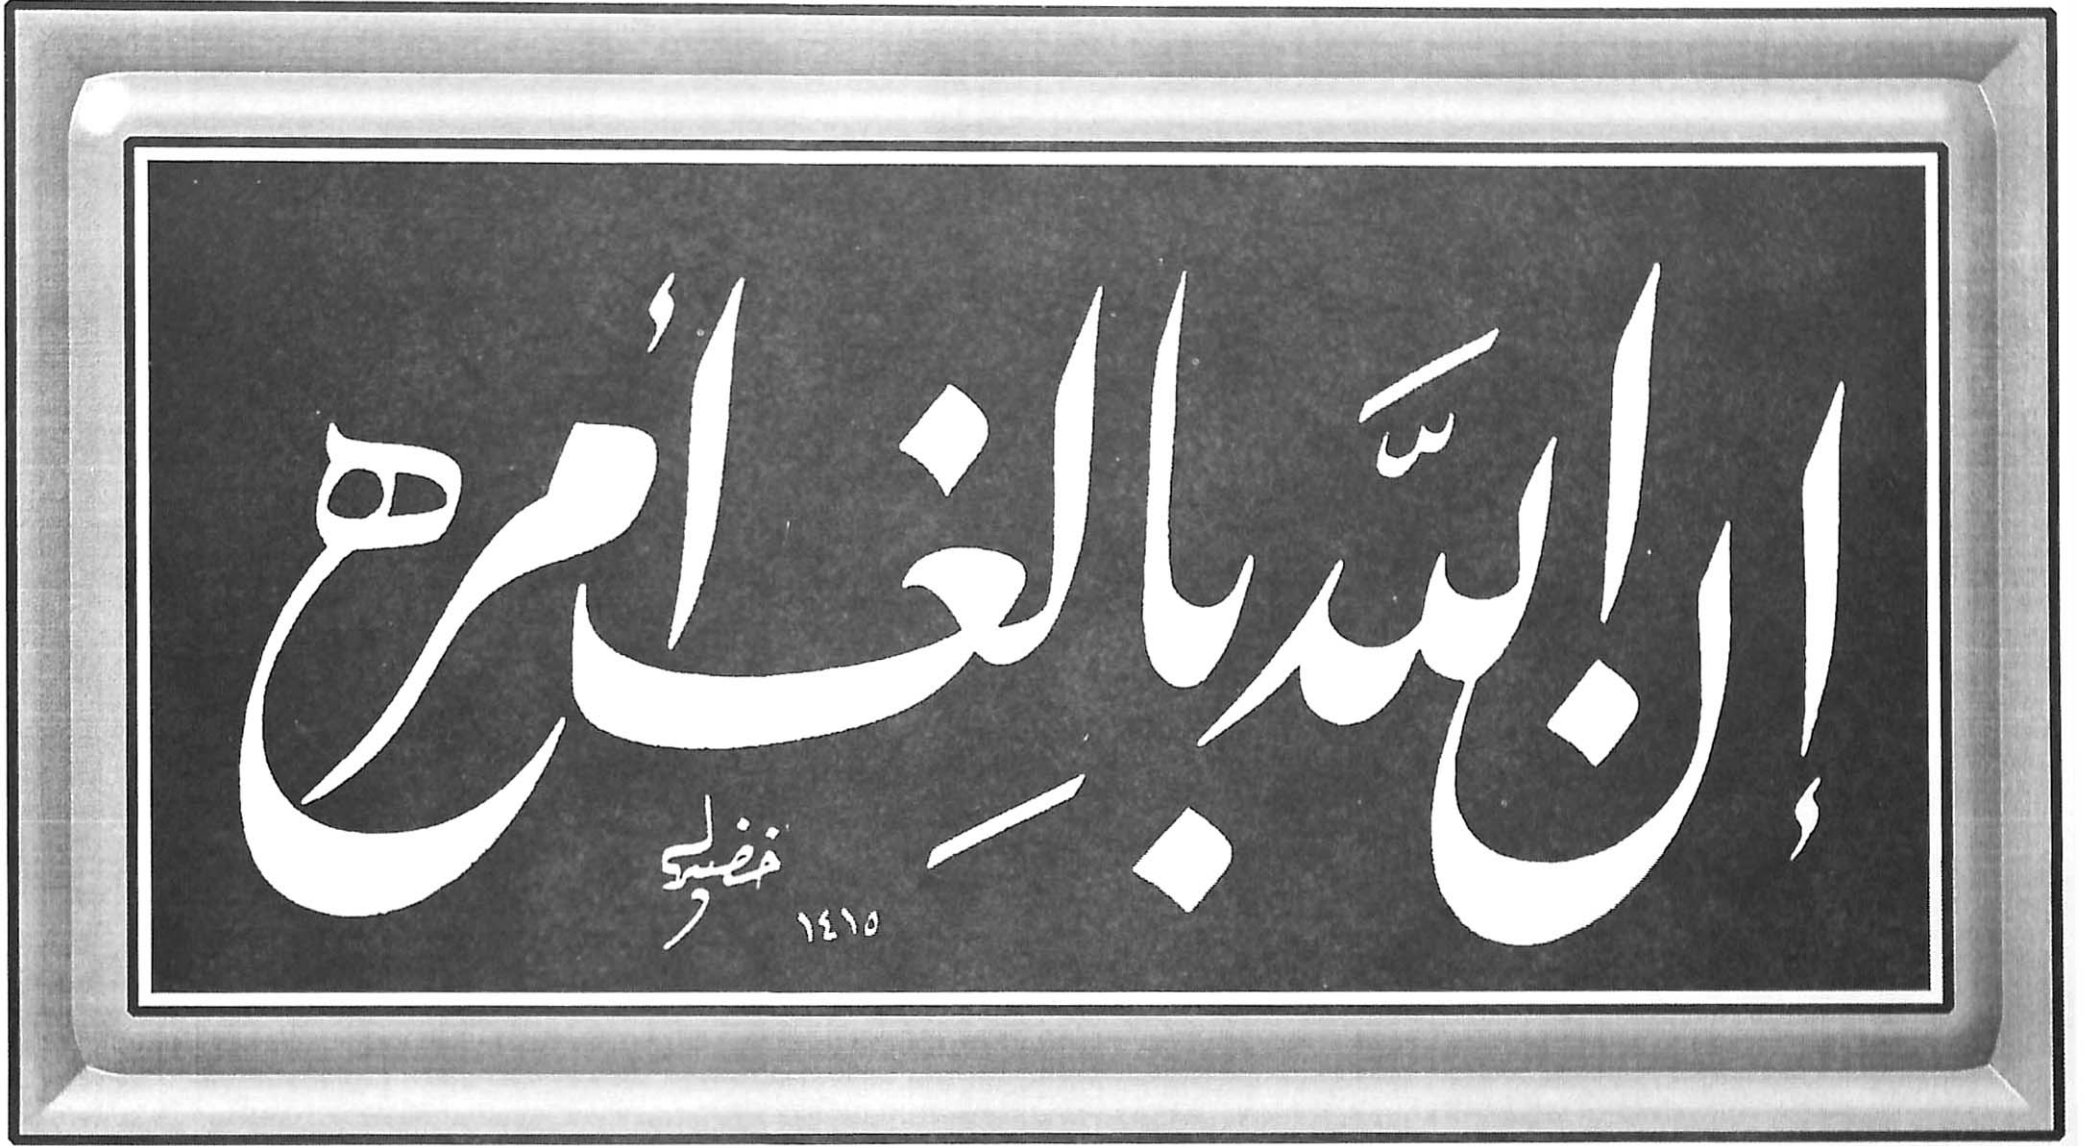 إن اللَّه بالِغ أمره
١٤١٥